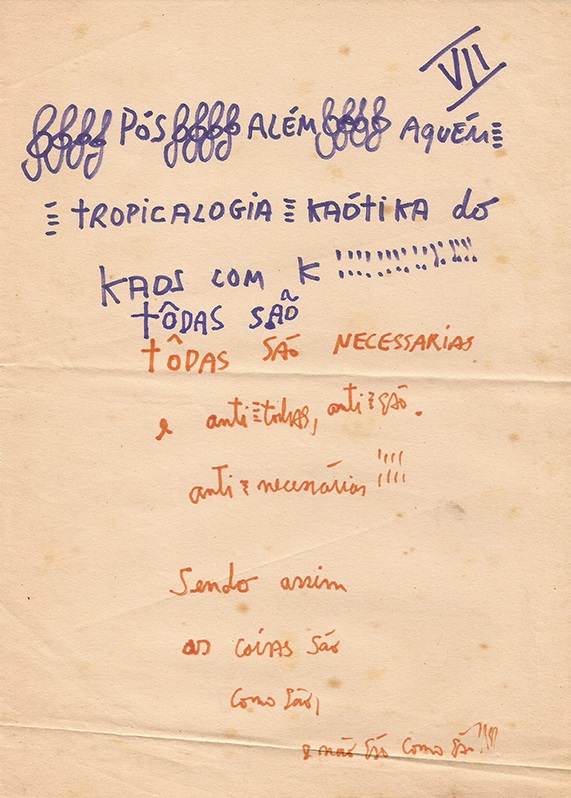 VII
PÓS ALÉM AQUÉM
TROPICALOGIA KAÓTIKA do
KAOS COM K !!!!!!!!!!!!!
TÔDAS SÃO
TÔDAS SÃO NECESSARIAS
e anti-todas, anti-são.
anti-necessárias !!!!
Sendo assim
as coisas são
como são,
e não são como são!!!!